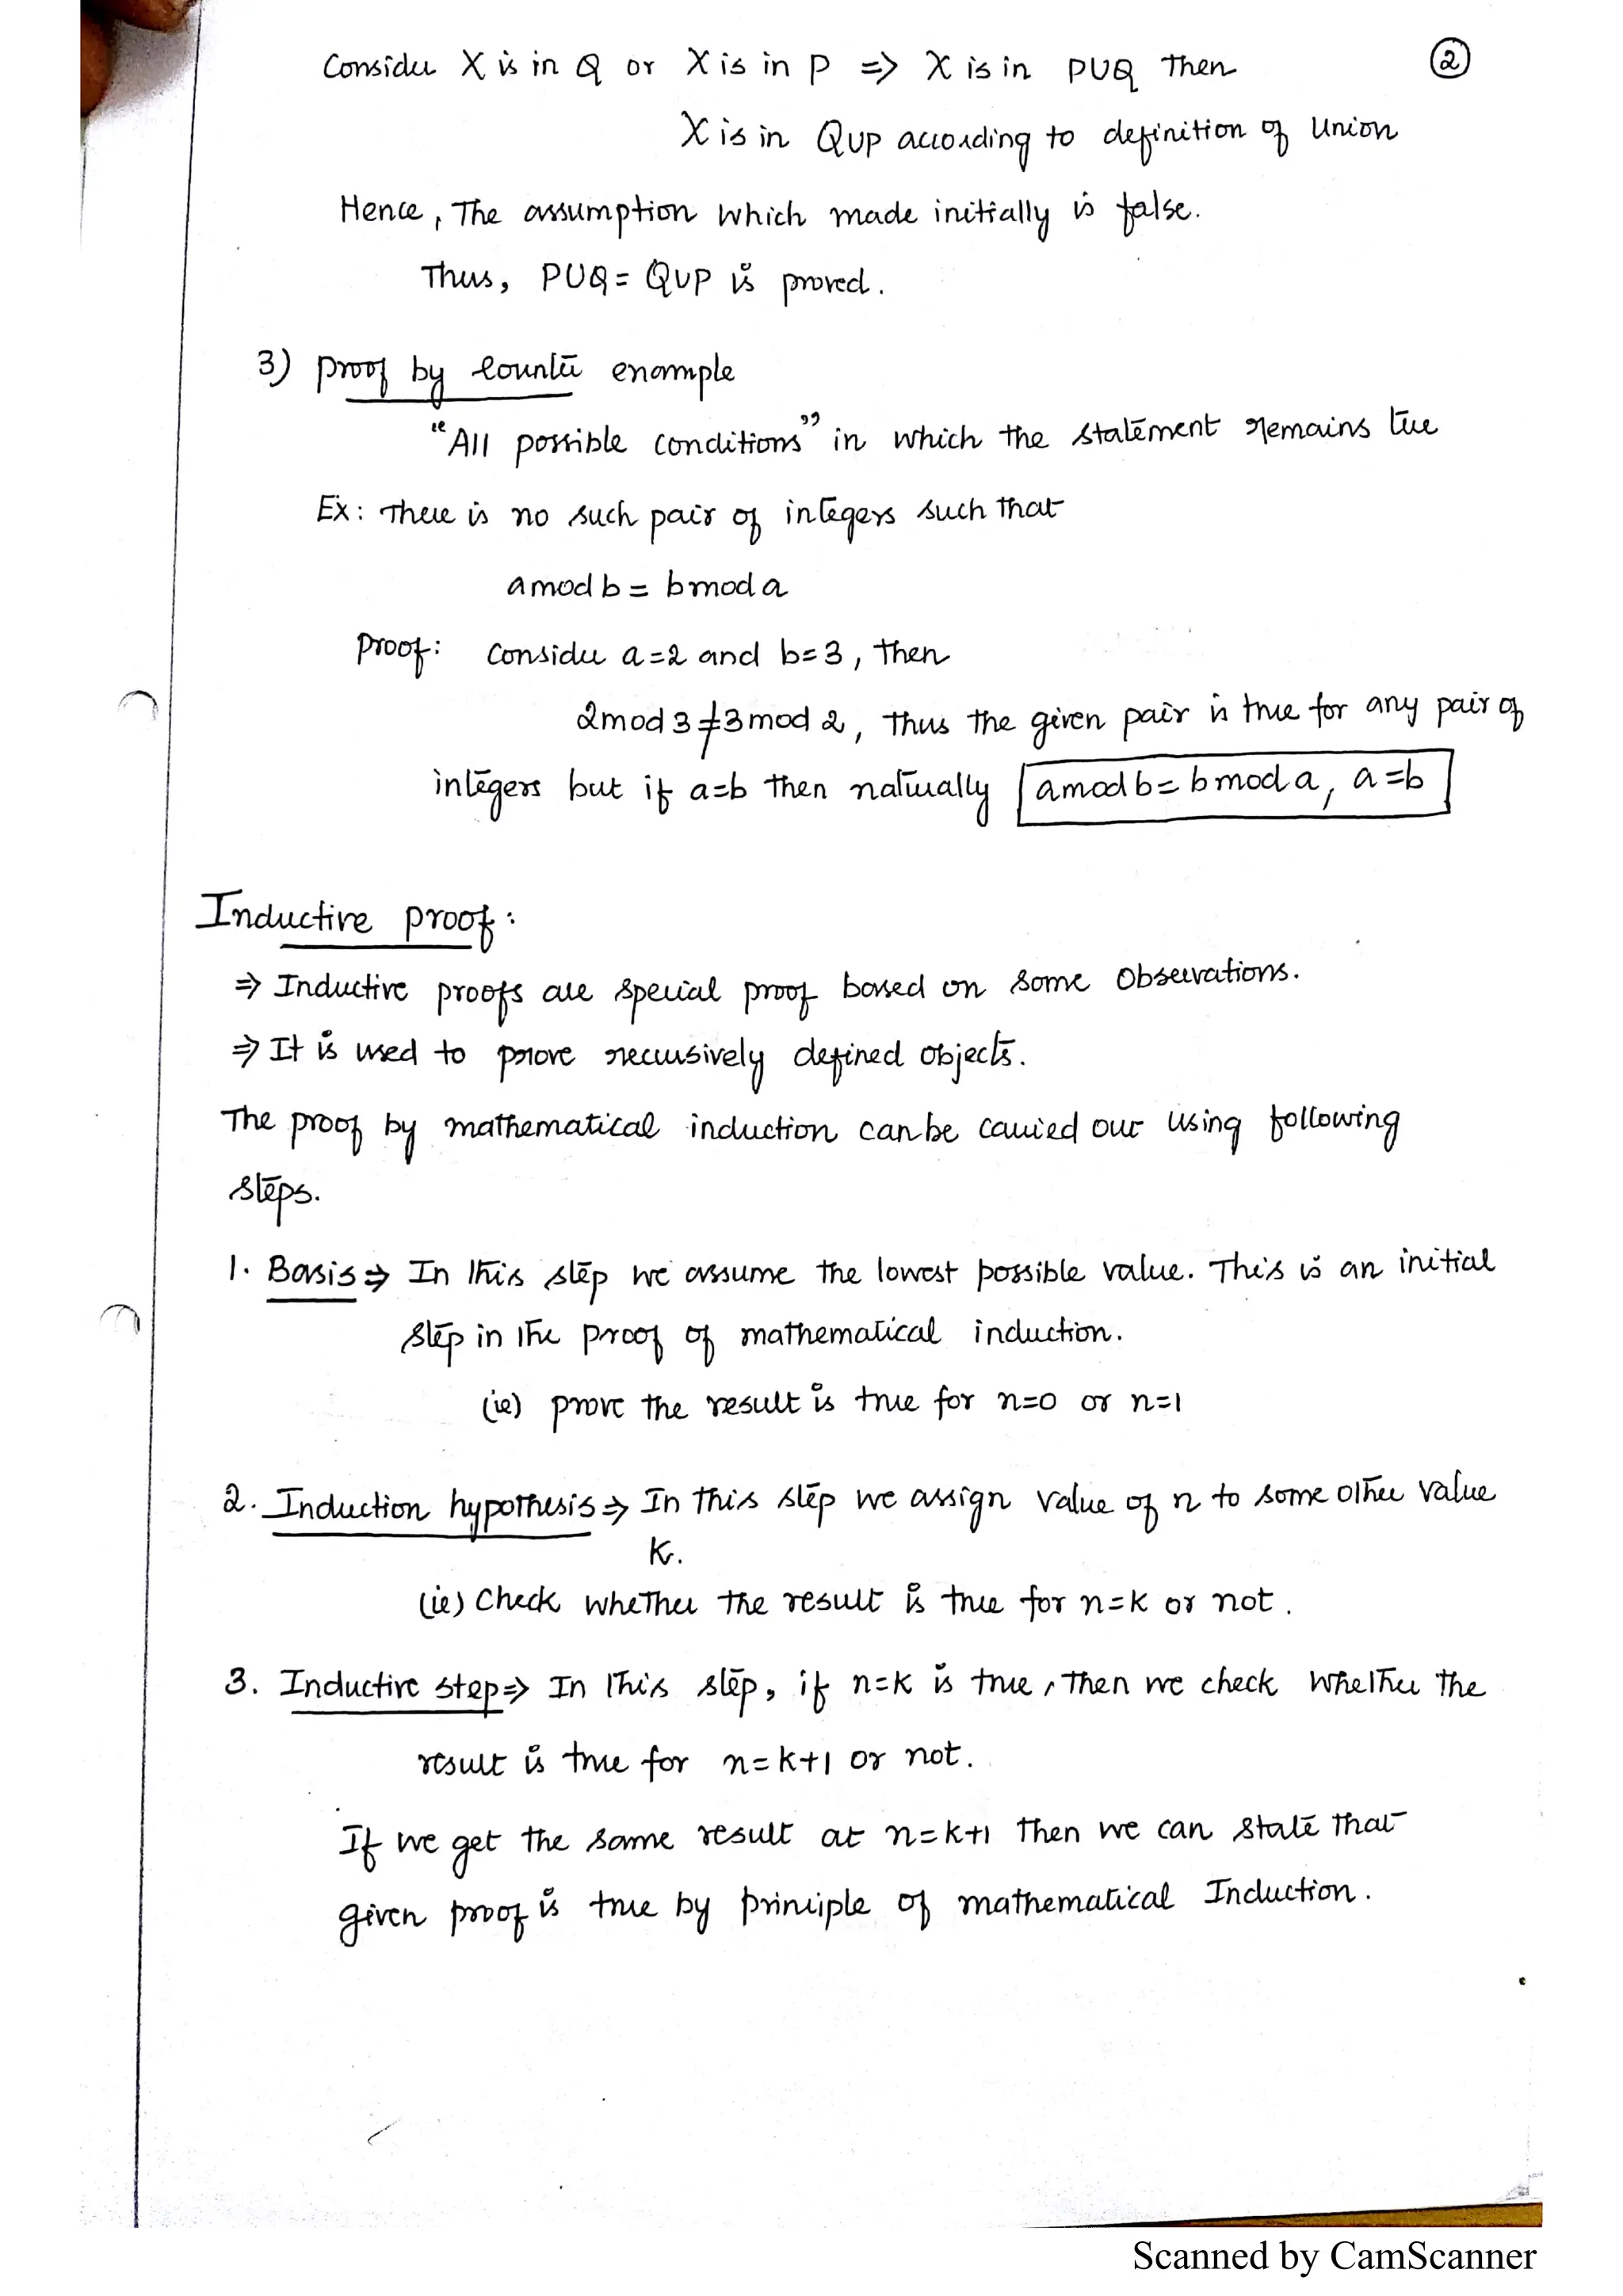 Consider X is in Q or X is in P => X is in PUQ then
②
X is in QUP according to definition of Union
Hence, The assumption which made initially is false.
Thus, PUQ = QUP is proved.
3) Proof by Counter example
"All possible conditions" in which the statement remains true
Ex: There is no such pair of integers such that
a mod b = b mod a
Proof: Consider a=2 and b=3, then
2 mod 3 ≠ 3 mod 2, Thus the given pair is true for any pair of
integers but if a=b then naturally a mod b = b mod a, a=b
Inductive proof:
⇒ Inductive proofs are special proof based on some observations.
⇒ It is used to prove recursively defined objects.
The proof by mathematical induction can be carried out using following
steps.
1. Basis ⇒ In this step we assume the lowest possible value. This is an initial
step in the proof of mathematical induction.
(ie) prove the result is true for n=0 or n=1
2. Induction hypothesis ⇒ In this step we assign value of n to some other value
k.
(ie) Check whether the result is true for n=k or not.
3. Inductive step ⇒ In this step, if n=k is true, then we check whether the
result is true for n=k+1 or not.
If we get the same result at n=k+1 then we can state that
given proof is true by principle of mathematical Induction.
Scanned by CamScanner